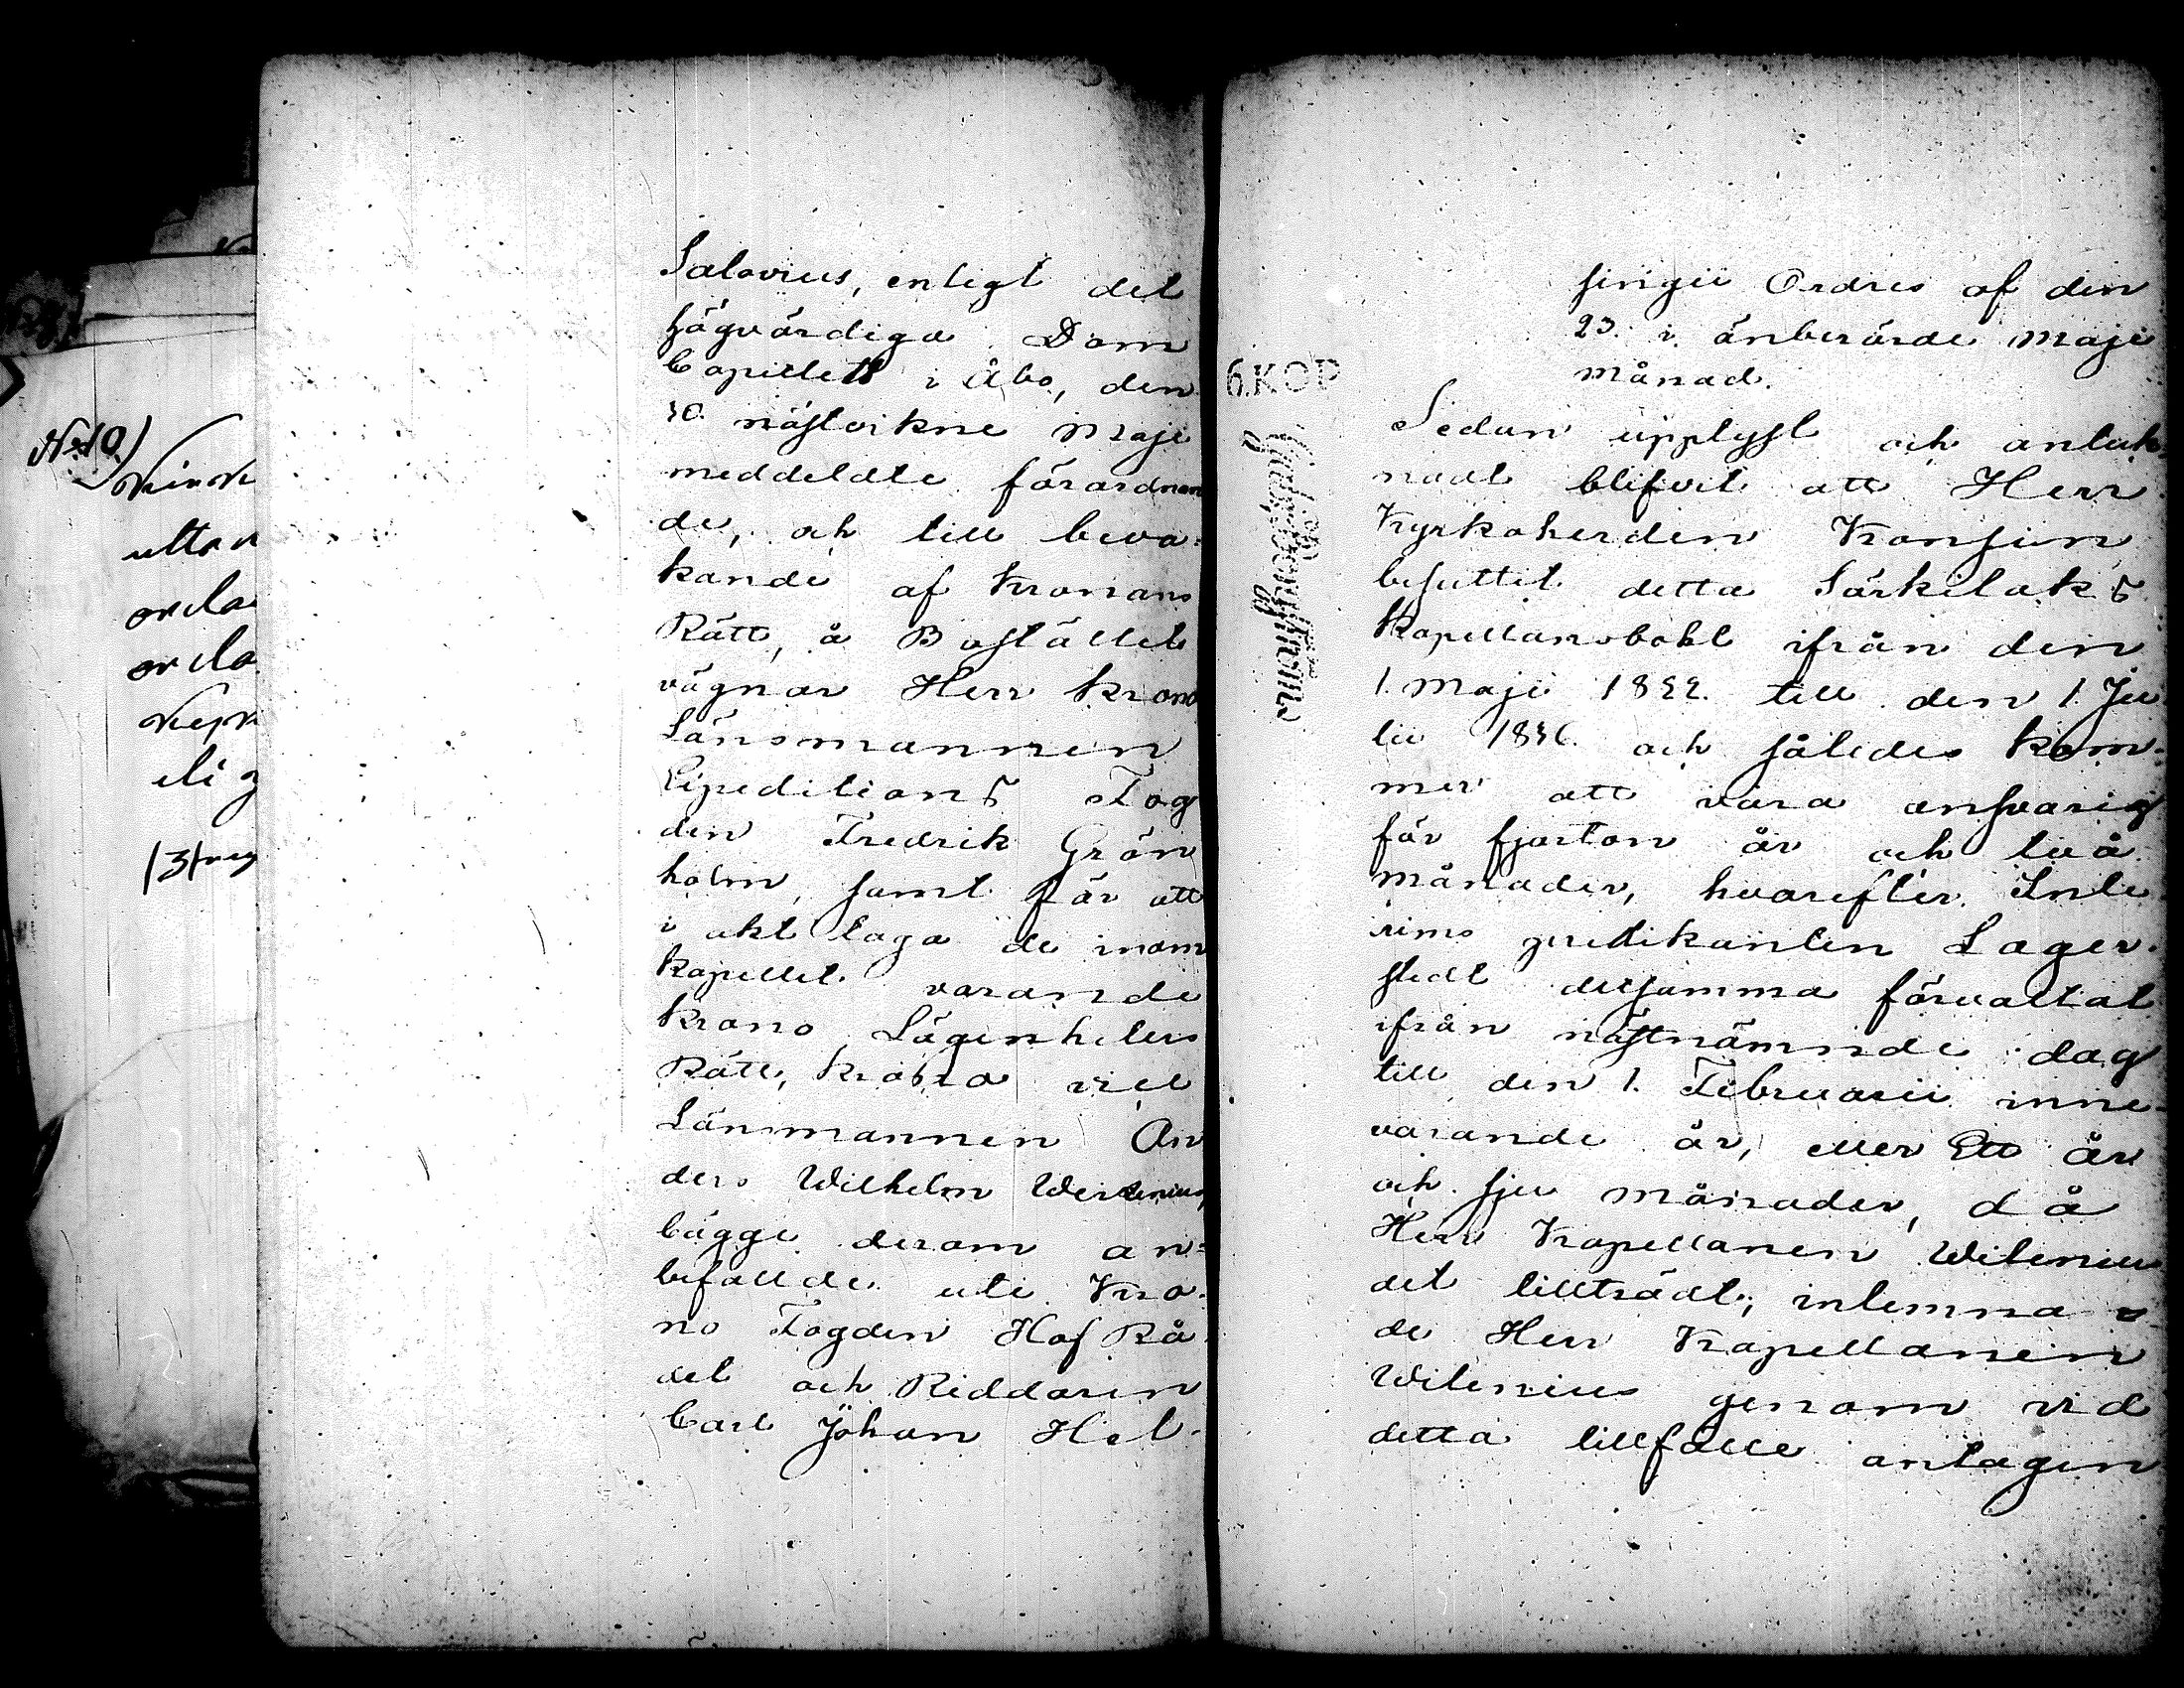 Salovius, enligt det
högvärdiga Dom
Capitlets i Åbo, den
30 nästvikne Maji
meddeldte förordnan
de, och till beva-
kande af Kronans
Rätt, å Boställets
vägnar Herr Krono
Länsmannen
Expeditions Fog
den Fredrik Grön
holm, samt för att
i akt taga de inom
kapellet varande
Krono Lägenheters
Rätt, Krono vice
Länsmannen An
ders Wilhelm
bägge derom an-
befallde uti Kro-
no Fogden Hof Rå
det och Riddaren
Carl Johan Hel-
singii Ordres af den
23. i änberörde Maji
månad.
Sedan upplyst och anteck
nadt blifvit att Herr
Kyrkoherden
besuttit detta Särkilaks
Kapellansbohl ifrån den
1. Maji 1822. till den 1. Ju
lii 1836. och således kom-
mer att vara ansvarig
för fjorton år och två
månader, hvarefter Inte
rims predikanten Lager-
stedt detsamma förvaltat
ifrån nästnämnde dag
till den 1. Februarii inne-
varande år, eller Ett år
och sju månader, då
Herr Kapellanen Wilenius
det tillträdt; inlemna-
de Herr Kapellanen
Wilenius genom vid
detta tillfälle antagen
6.KOP
No 10.)